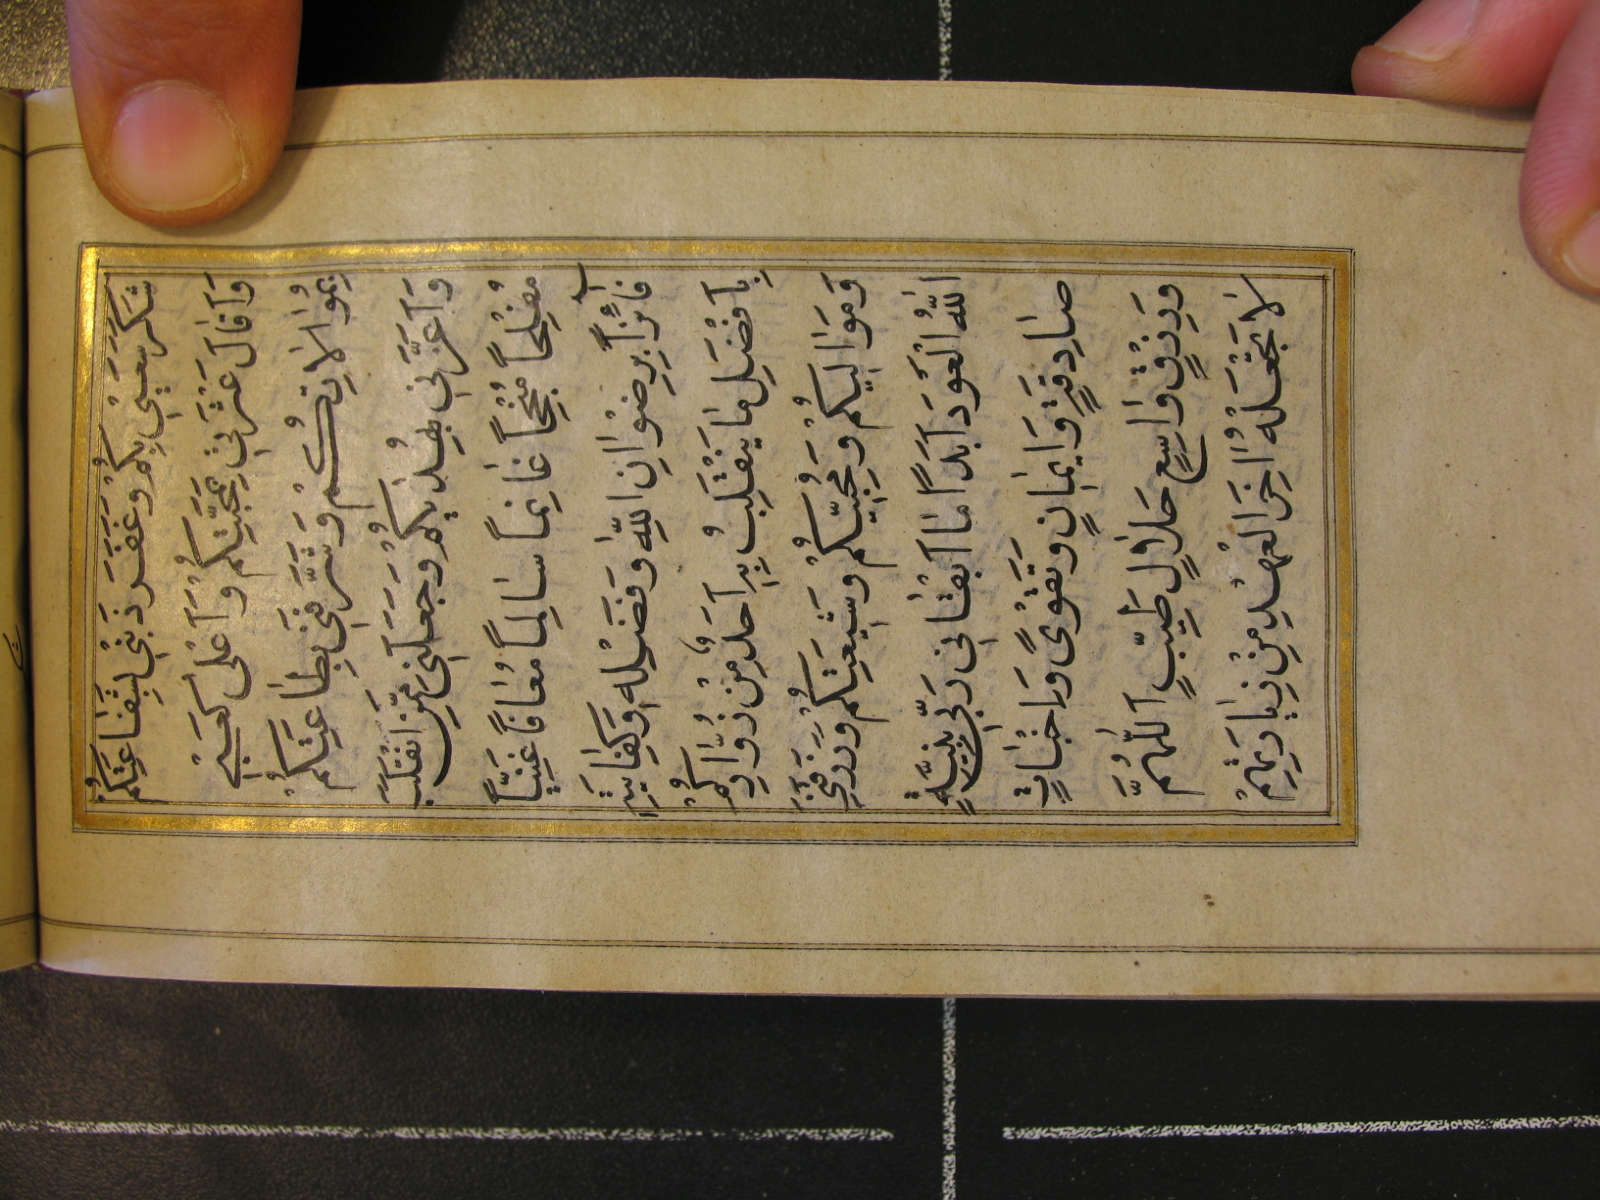 شَكَرَ سَعْيِي بِكُمْ وَغَفَرَ ذَنْبِي بِشَفَاعَتِكُمْ
وَاَقَالَ عَثْرَتِي بِمَحَبَّتِكُمْ وَاَعْلَى كَعْبِي
بِمُوَالَاتِكُمْ وَشَرَّفَنِي بِطَاعَتِكُمْ
وَاَعَزَّنِي بِهُدٰيكُمْ وَجَعَلَنِي مِمَّنِ انْقَلَبَ
مُفْلِحًا مُنْجِحًا غَانِمًا سَالِمًا مُعَافًا غَنِيًّا
فَآئِزًا بِرِضْوَانِ اللهِ وَفَضْلِهِ وَكِفَايَتِهِ
بِاَفْضَلِ مَا يَنْقَلِبُ بِهِ اَحَدٌ مِنْ زُوَّارِكُمْ
وَمَوَالِيكُمْ وَمُحِبِّيكُمْ وَشِيعَتِكُمْ وَرَزَقَنِيَ
اللهُ الْعَوْدَ اَبَدًا مَا اَبْقَانِي رَبِّي بِنِيَّةٍ
صَادِقَةٍ وَاِيمَانٍ وَتَقْوًى وَاِخْبَاتٍ
وَرِزْقٍ وَاسِعٍ حَلَالٍ طَيِّبٍ اَللّٰهُمَّ
لَا تَجْعَلْهُ اٰخِرَ الْعَهْدِ مِنْ زِيَارَتِهِمْ